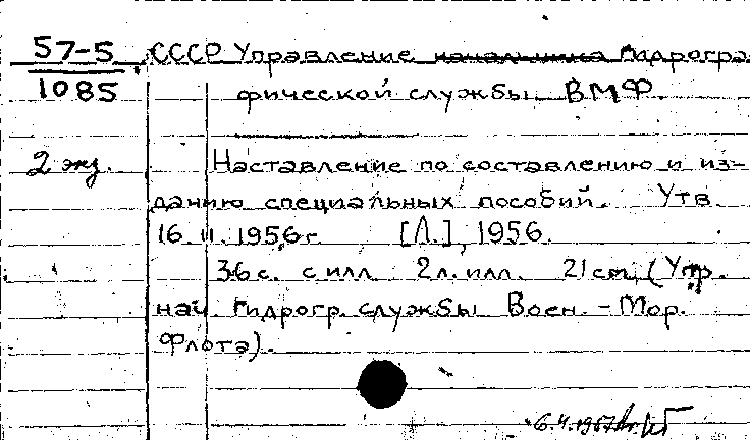 57-5 СССР Управление начальника Гидрогра-
1085 фической службы ВМФ.
2 экз. Наставление по составлению и из-
данию специальных пособий. Утв.
16.II.1956г. [Л.], 1956.
36 с. с илл. 2 л. илл. 21 cm. (Упр.
нач. Гидрогр. службы Воен.-Мор.
Флота).